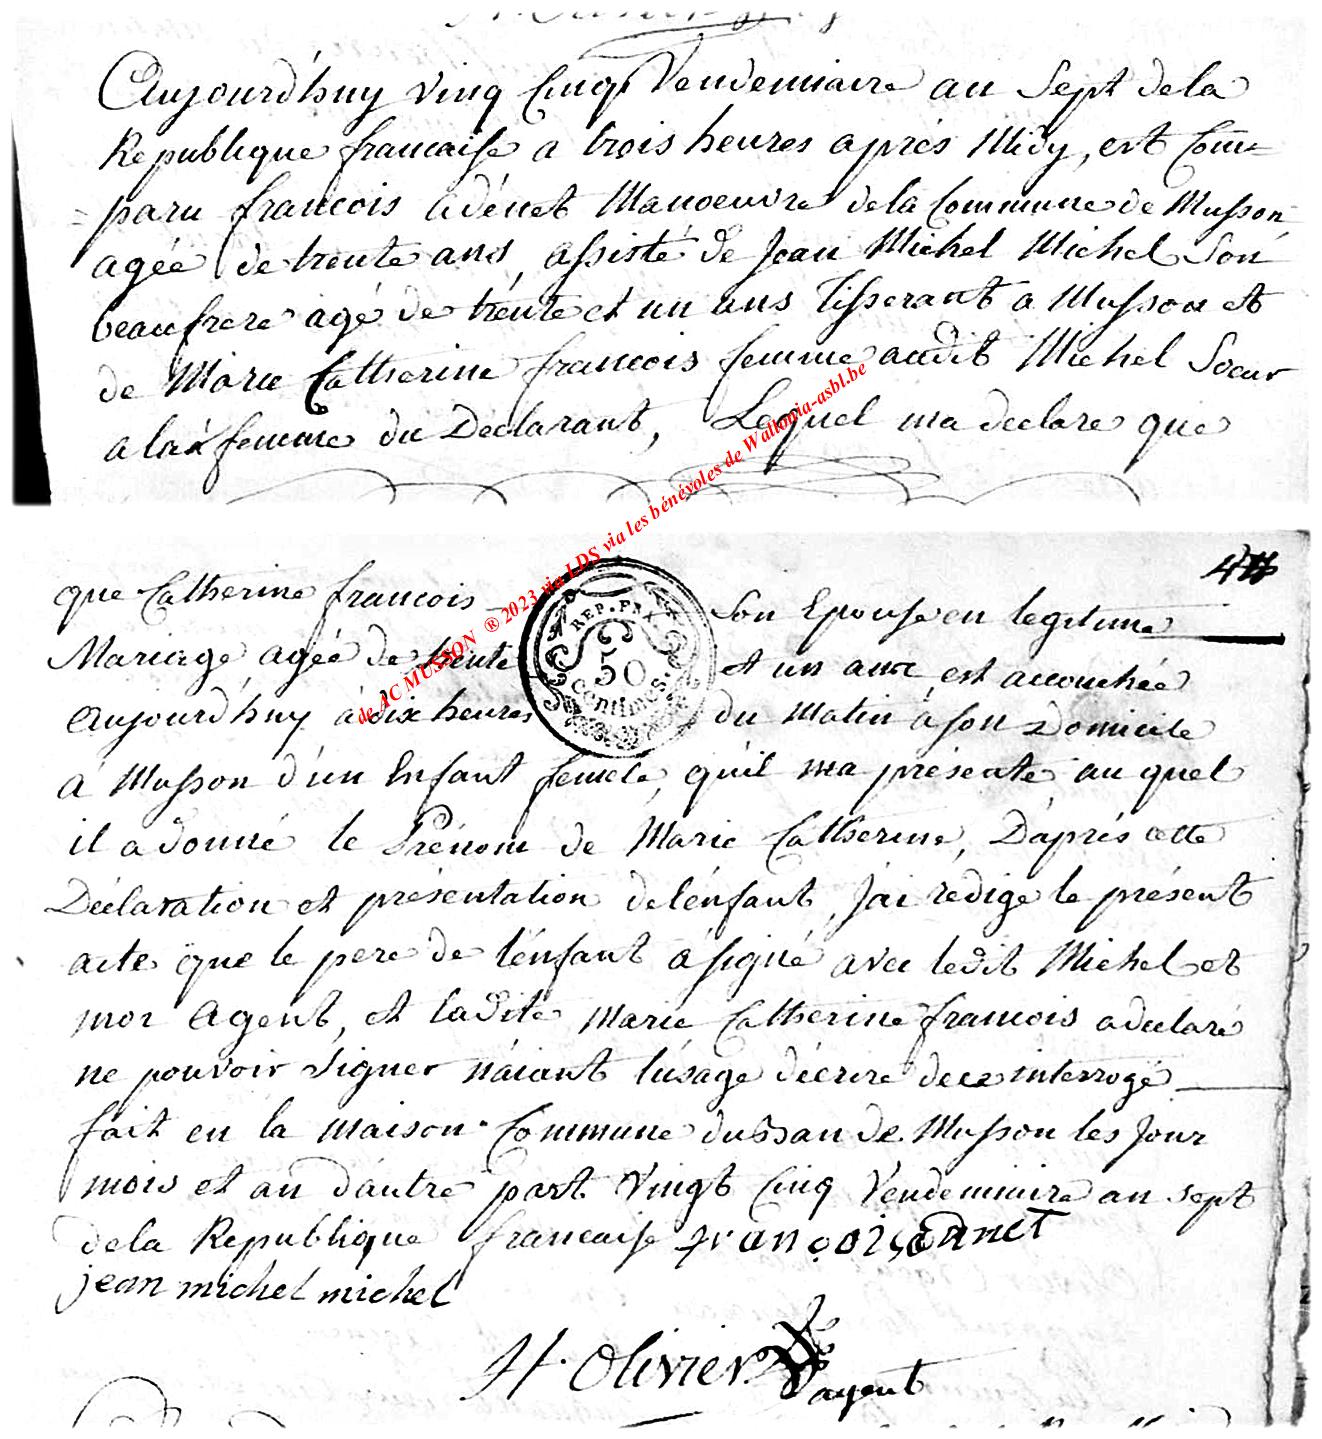 Aujourd'huy vinq Cinq Vendemiaire au Sept dela
Republique francaise a trois heures après Midy, est Com=
=paru francois adénet Manoeuvre dela Commune de Musson
agée de trente ans, assisté de Jean Michel Michel Son
beaufrere agé de trente et un ans Tisserant a Musson et
de Marie Catherine francois femme audit Michel Soeur
a la femme du Déclarant, Lequel ma declare que
que Catherine francois Son Epouse en legitime
Mariage agée de trente et un ans est accouchée
aujourd'huy à dix heures du Matin à son Domicile
à Musson d'un Enfant femele, qu'il ma présente au quel
il a donné le Prénom de Marie Catherine, D'aprés cette
Déclaration et présentation de l'énfant, J'ai rédige le présent
acte que le pere de l'énfant à signé avec ledit Michel et
moi Agent, et ladite Marie Catherine francois a declaré
ne pouvoir signer n'aiant l'usage d'écrire de ce interrogé
fait en la maison Commune du Ban de Musson les Jour
mois et an d'autre part Vingt Cinq Vendemiaire an sept
dela Republique francaise françois adnet
jean michel michel
H. Olivier
agent
REP. FRA.
50
Centimes.
de AC MUSSON ® 2023 via LDS via les bénévoles de Wallonia-asbl.be